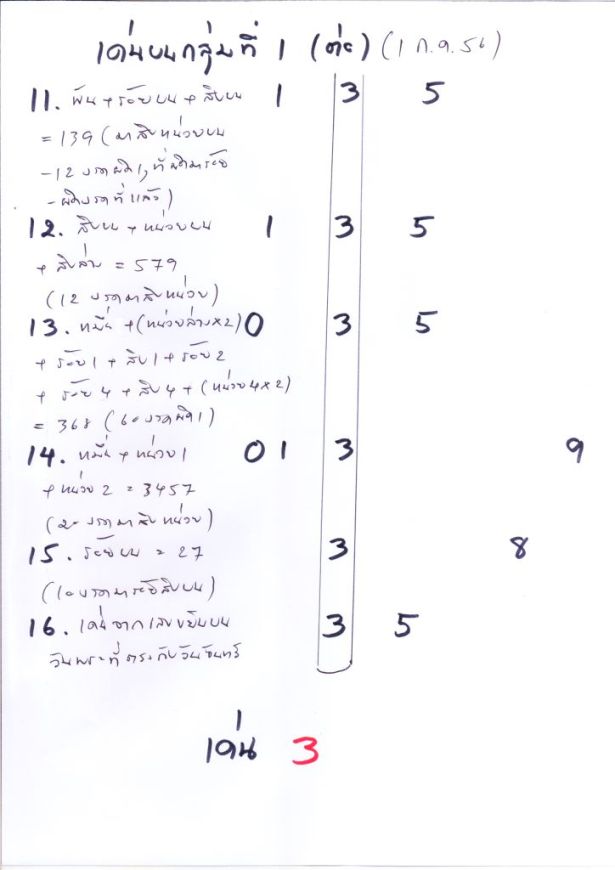 เด่นบนกลุ่มที่ 1 (ต่อ) (1 ก.ค. 56)
11. พัน + ร้อยบน + สิบบน 1 3 5
= 139 (มาสิบหน่วยบน
-12 งวดผิด 1, ที่ผิดมาร้อย
-ผิดงวดที่แล้ว)
12. สิบบน + หน่วยบน 1 3 5
+ สิบล่าง = 579
(12 งวดมาสิบหน่วย)
13. หมื่น + (หน่วยล่าง×2) 0 3 5
+ ร้อย 1 + สิบ 1 + ร้อย 2
+ ร้อย 4 + สิบ 4 + (หน่วย 4×2)
= 368 (60 งวดผิด 1)
14. หมื่น + หน่วย 1 0 1 3 9
+ หน่วย 2 = 3457
(20 งวดมาสิบหน่วย)
15. ร้อยบน = 27 3 8
(10 งวดมาร้อยสิบบน)
16. เด่นจากเลขขยันบน 3 5
วันพระที่ตรงกับวันจันทร์
เด่น 3